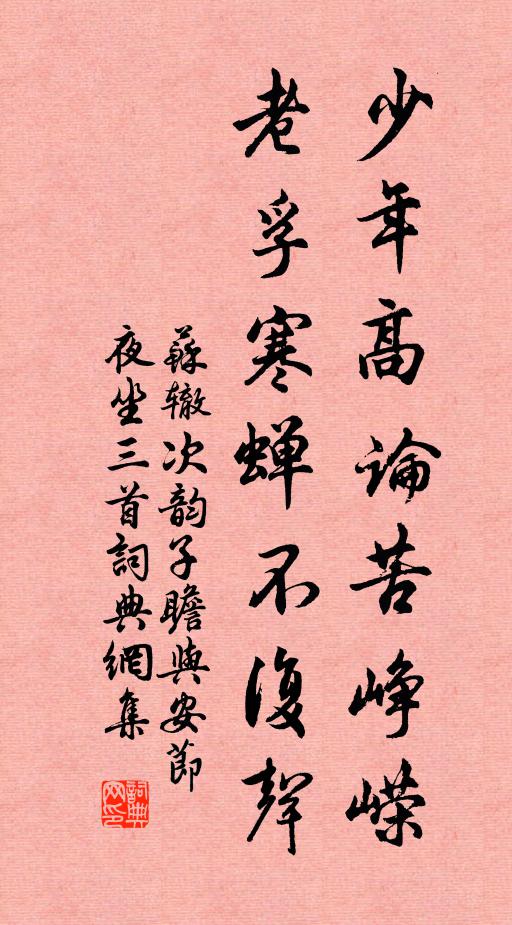 少年高論苦峥嶸
老孚寒蝉不復聲
蘇辙次韵子瞻與安節
夜坐三首詞典網集
詞典網印